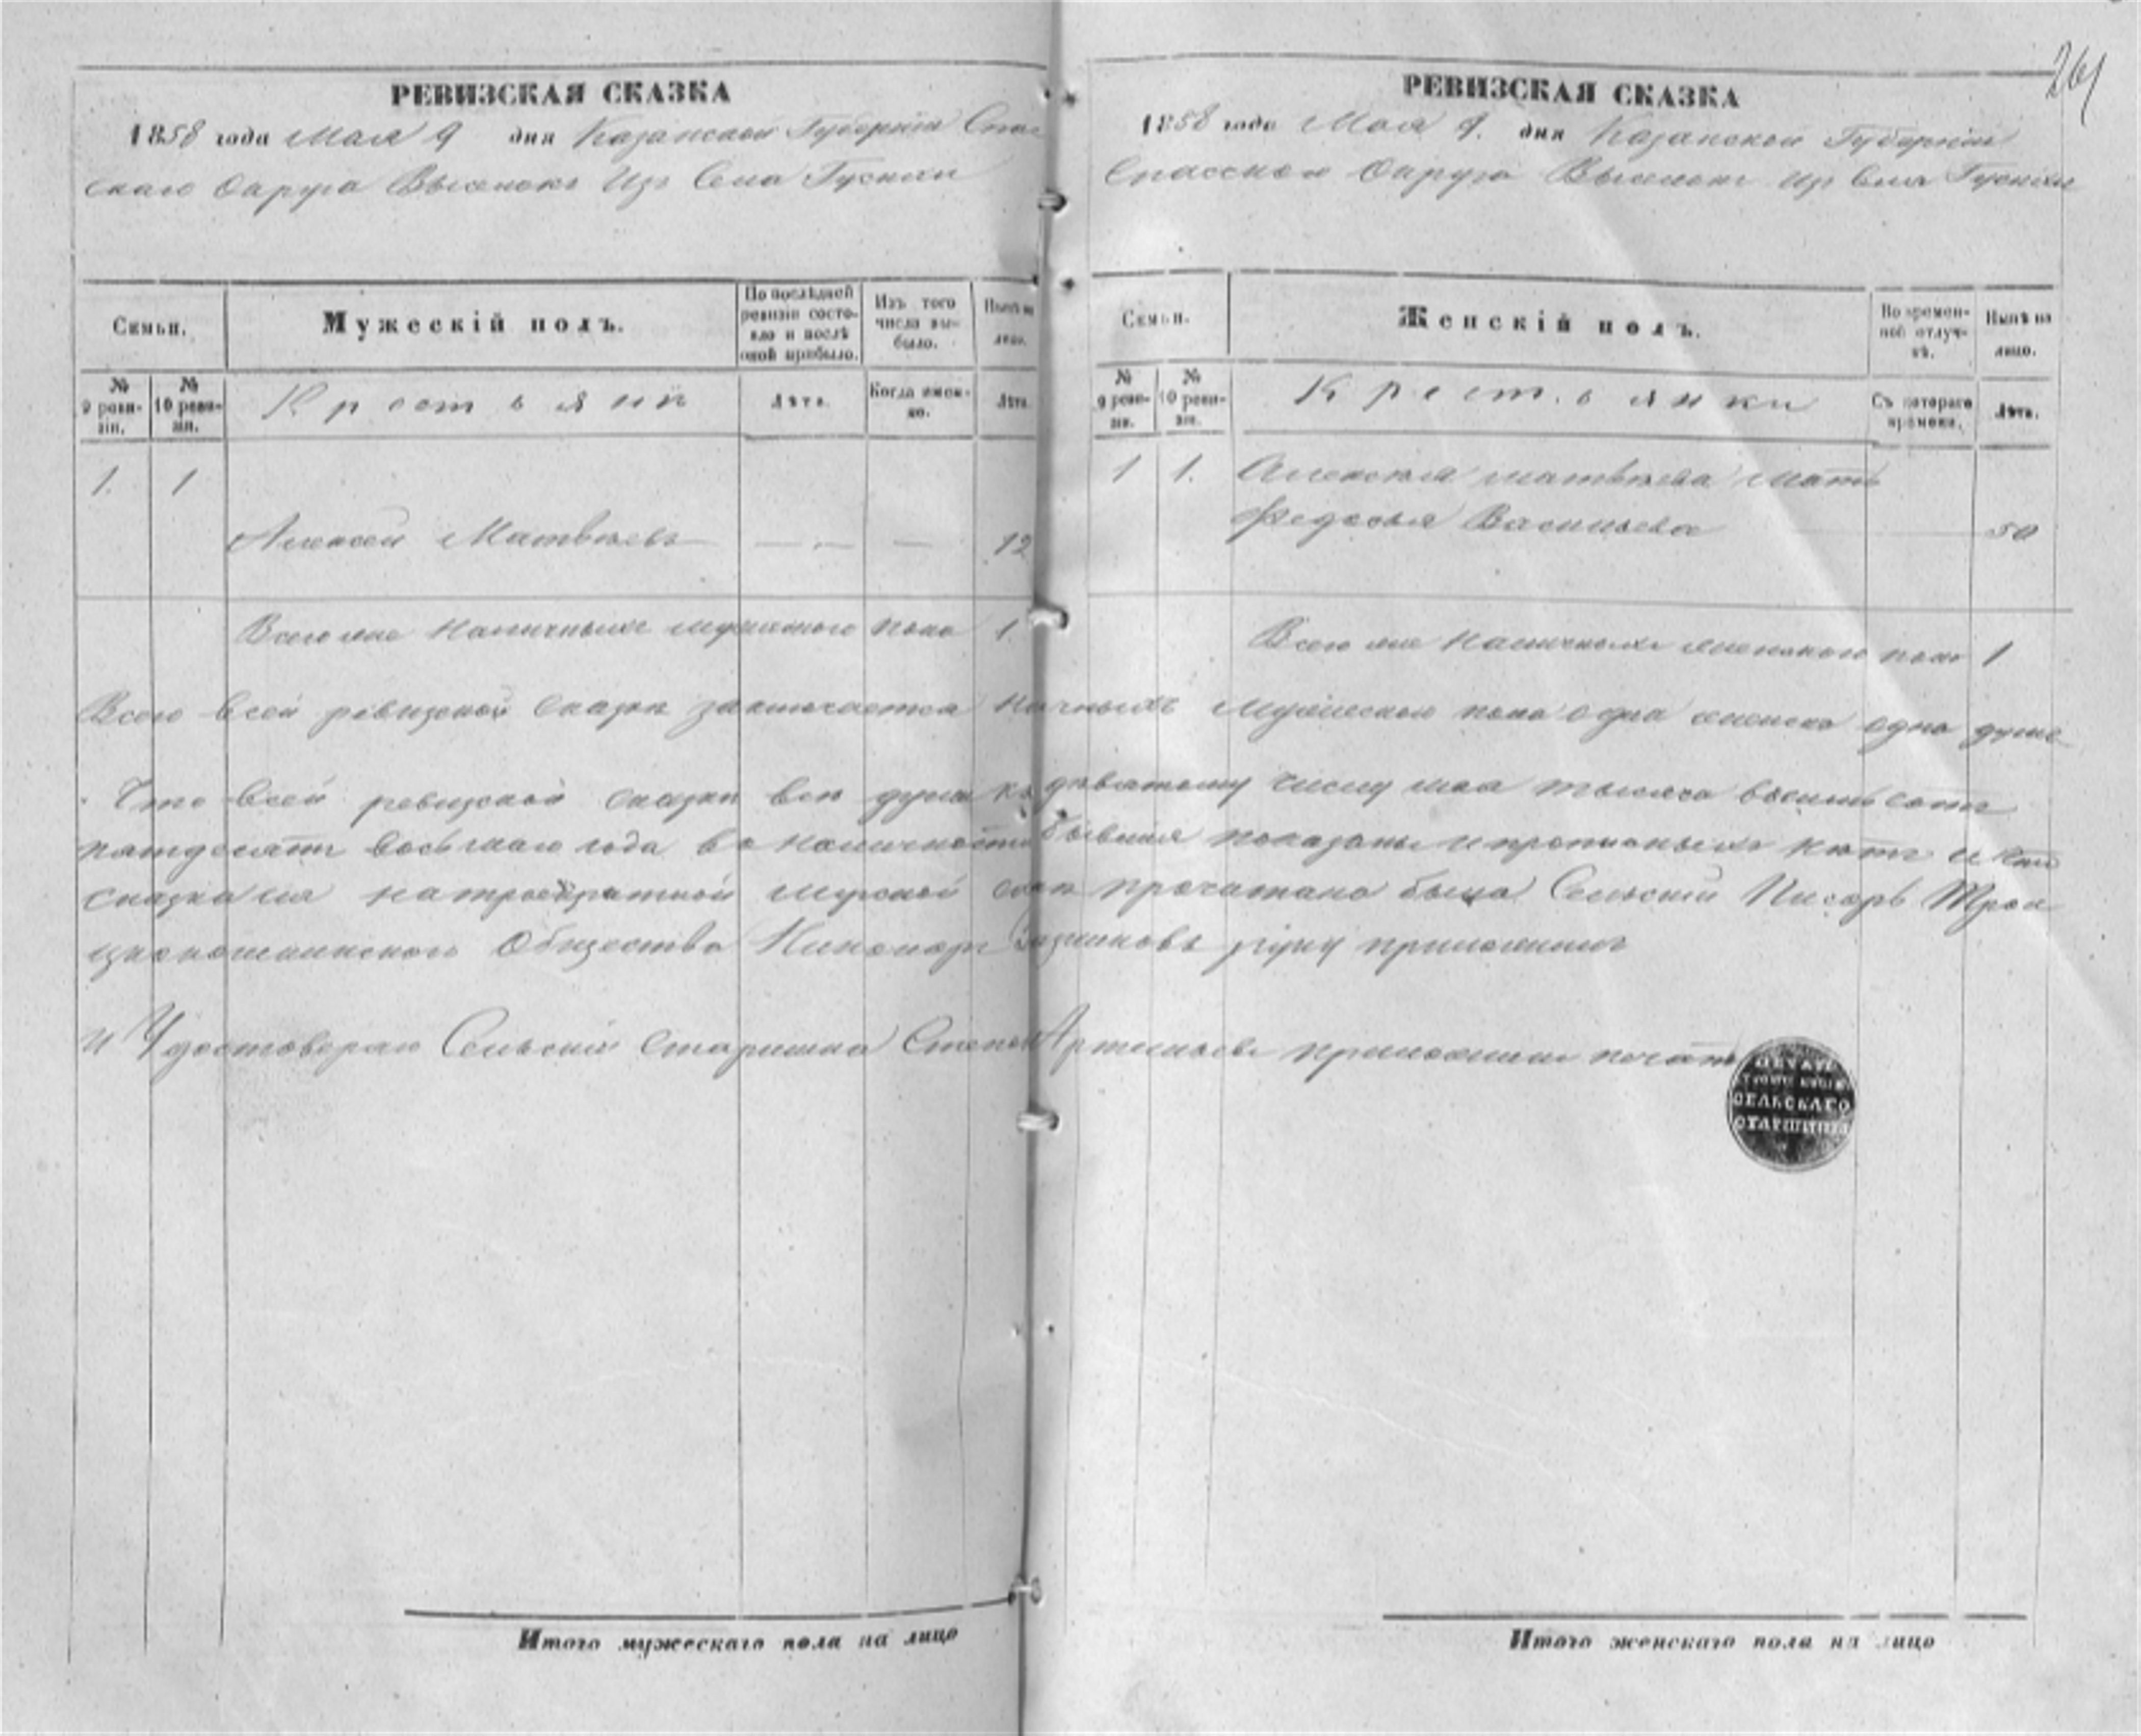 РЕВИЗСКАЯ СКАЗКА
1858 года Мая 9 дня Казанской Губерніи Спас
скаго Округа Выселокъ Изъ Села
Семьи.
Мужескій полъ.
По послѣдней ревизіи состояло и послѣ оной прибыло.
Изъ того числа выбыло.
Нынѣ на лицо.
№ 9 реви-зіи.
№ 10 реви-зіи.
Крестьянъ
Лѣта.
Когда имен-но.
Лѣта.
1. 1
Алексей Матвѣевъ — — — 12
Всего же Наличныхъ мужескаго пола 1.
261
РЕВИЗСКАЯ СКАЗКА
1858 года Мая 9. дня Казанской Губерніи
Спасскаго Округа Выселокъ Изъ Села
Семьи.
Женскій полъ.
Во времен-ной отлуч-кѣ.
Нынѣ на лицо.
№ 9 реви-зіи.
№ 10 реви-зіи.
Крестьянки
Съ котораго времени.
Лѣта.
1 1. Алексѣя матвѣева Мать
Федосья Васильева 50
Всего же Наличныхъ женскаго пола 1
Всего всей ревизской Сказки заключается мужескаго пола одна женска одна душа
Что всей ревизской сказки всѣ души къ девятому числу мая тысяча восемьсотъ
пятдесятъ восьмаго года въ наличности бывшія показаны и прописныхъ нѣтъ и
сказка сія на мирской прочитана была Сельскій Писарь
Общества руку приложилъ
И Удостоверяю Сельский Старшина Степанъ Артемьевъ приложилъ печать
ПЕЧАТЬ
СЕЛЬСКАГО
СТАРШИНЫ
Итого мужескаго пола на лицо
Итого женскаго пола на лицо